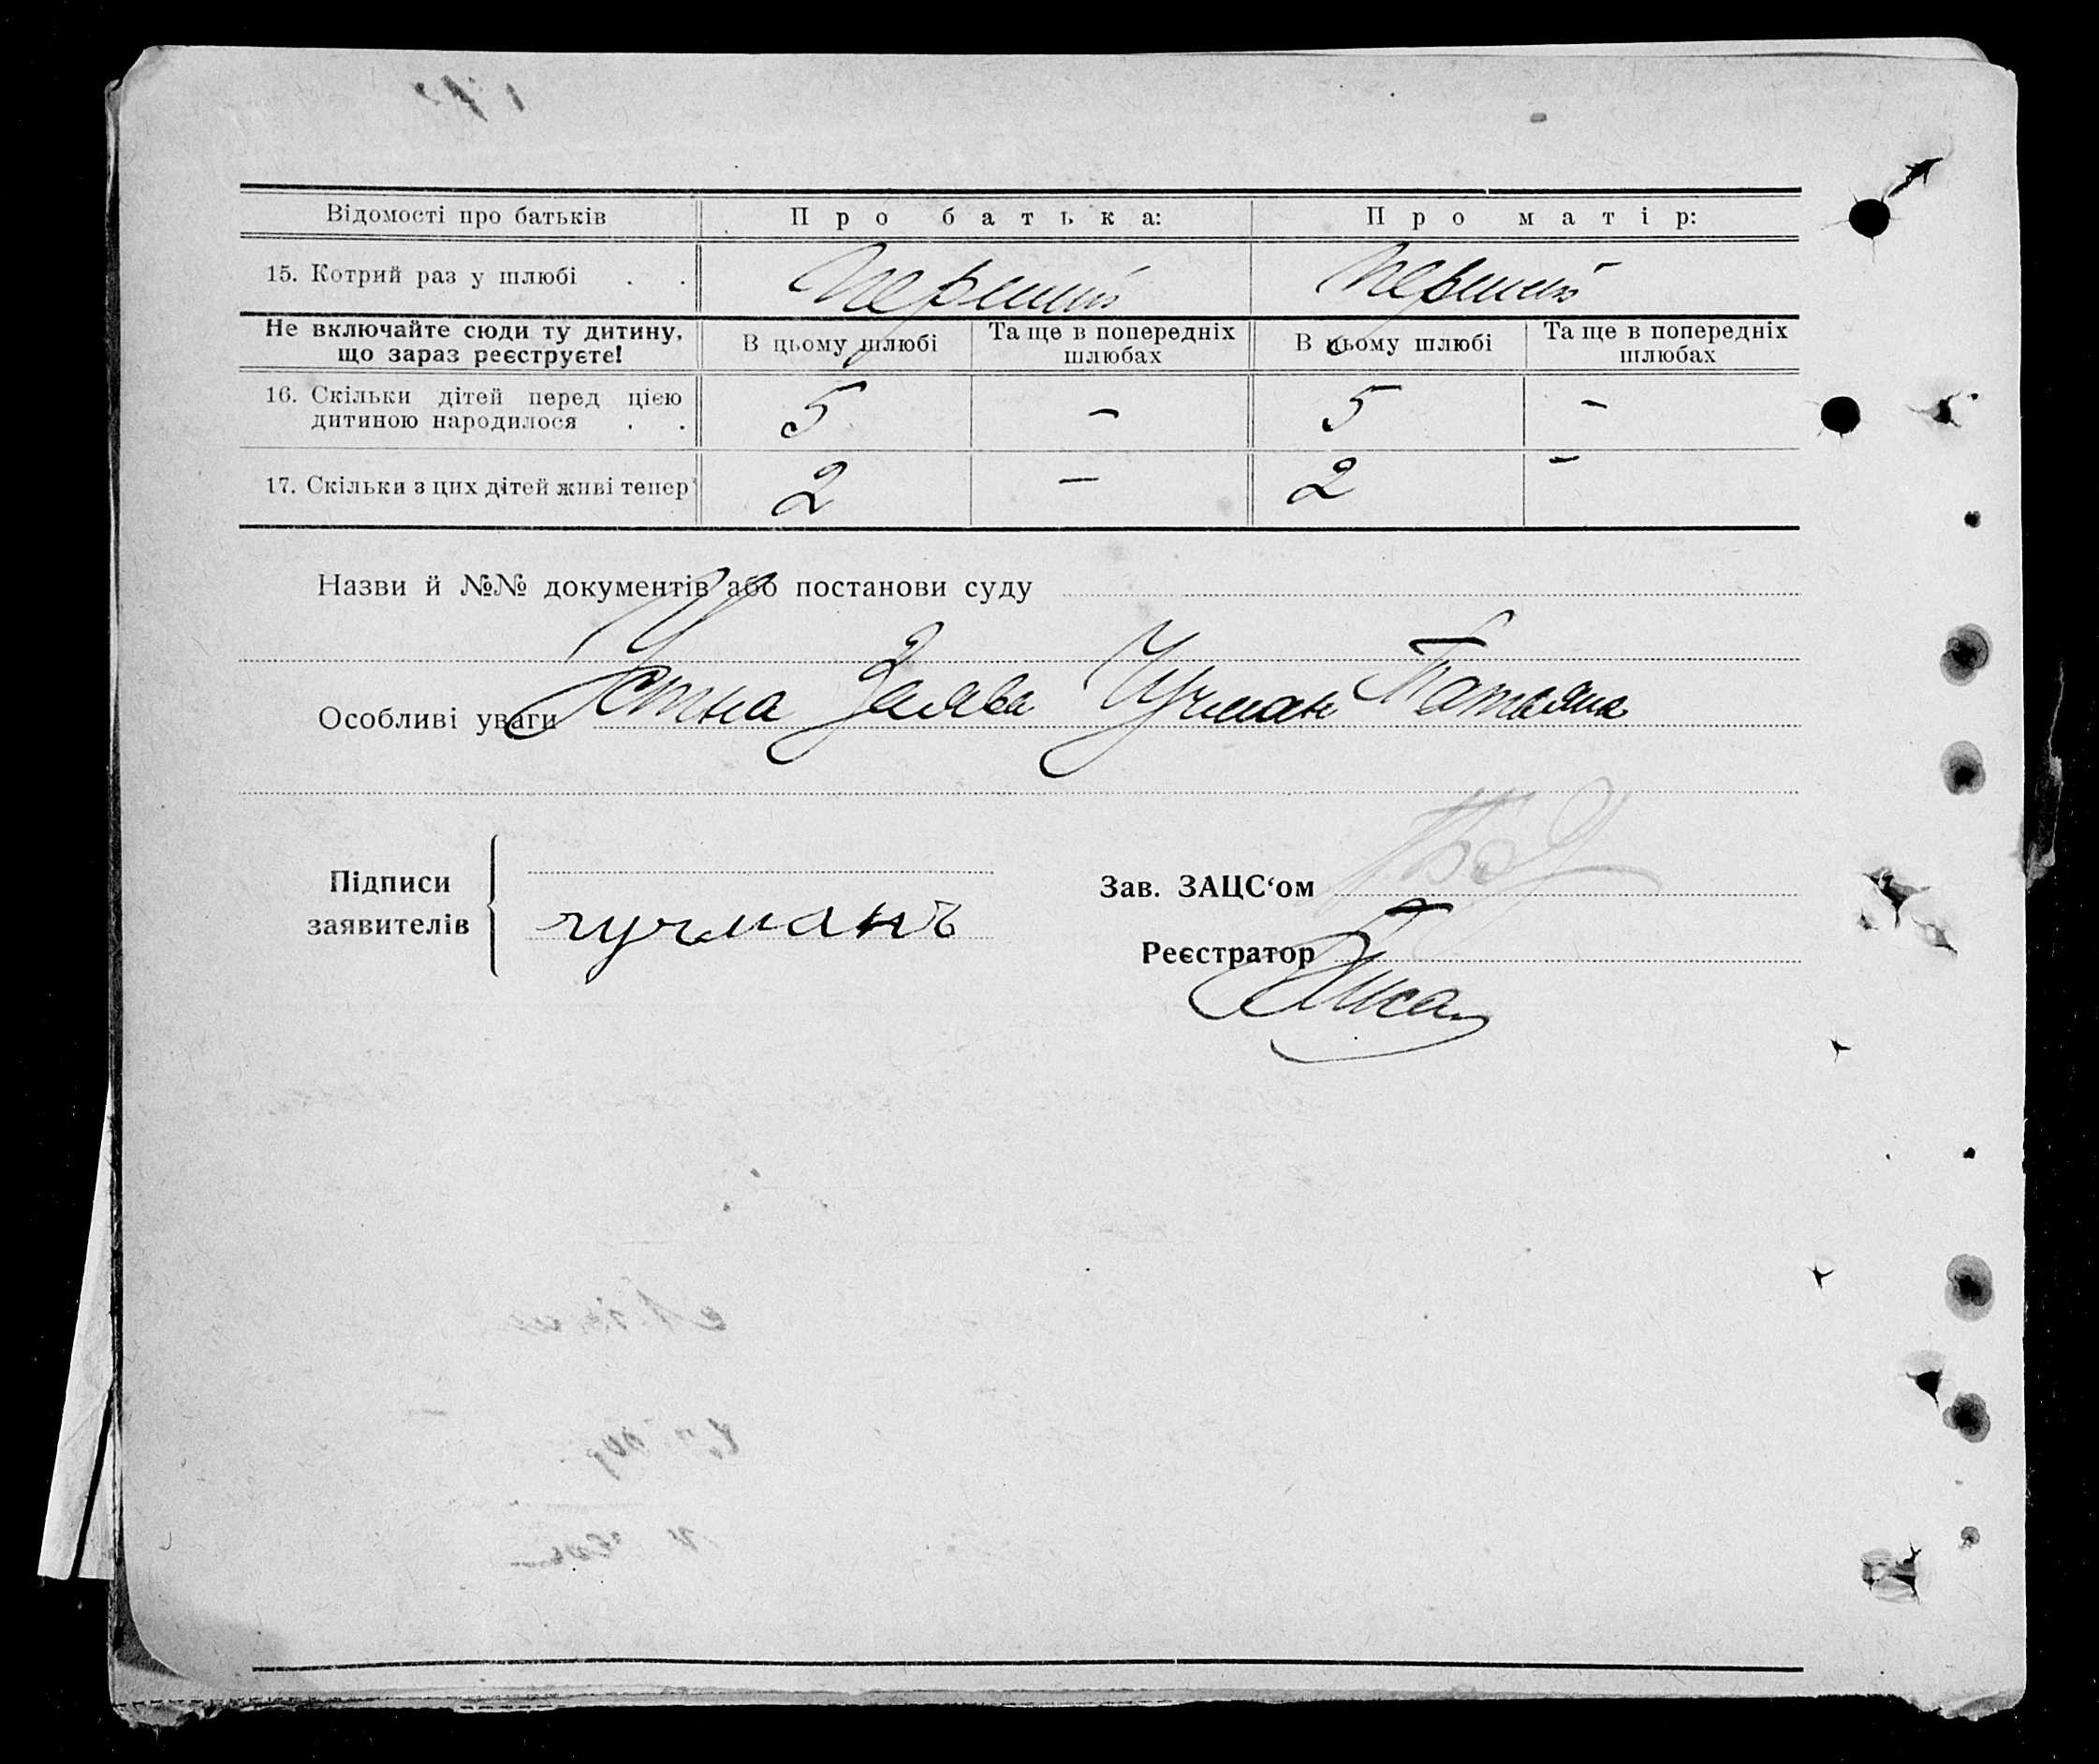 Відомості про батьків Про батька: Про матір:
15. Котрий раз у шлюбі . . Перший Перший
Не включайте сюди ту дитину, що зараз реєструєте! В цьому шлюбі Та ще в попередніх шлюбах В цьому шлюбі Та ще в попередніх шлюбах
16. Скільки дітей перед цією дитиною народилося . . 5 – 5 –
17. Скільки з цих дітей живі тепер 2 – 2 –
Назви й №№ документів або постанови суду
Особливі уваги Устна Заява Чучман Татьяна
Підписи заявителів чучманъ
Зав. ЗАЦС‘ом
Реєстратор